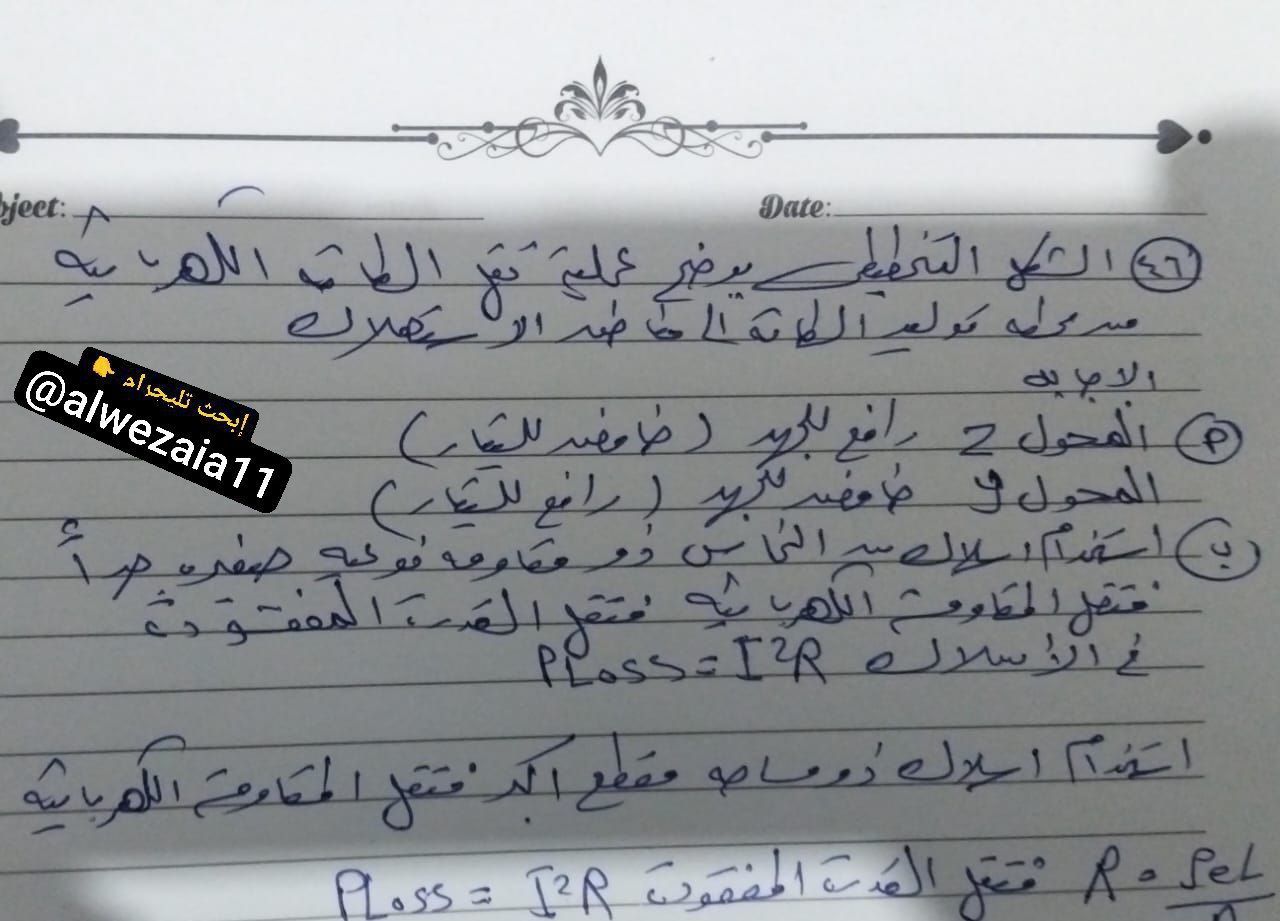 bject:
Date:
٤٦ الشكل التخطيطي يوضح عملية نقل الطاقة الكهربائية
من محطه توليد الطاقة الى مناطق الاستهلاك
الاجابه
إبحث تليجرام
@alwezaia11
P المحول Z رافع للجهد (خافض للتيار)
المحول و خافض للجهد (رافع للتيار)
ب استخدام اسلاك من النحاس ذو مقاومه نوعيه صغيره جداً
فتقل المقاومة الكهربائية فتقل القدرة المفقودة
في الأسلاك PLoss = I²R
استخدام اسلاك ذو مساحه مقطع اكبر فتقل المقاومة الكهربائية
R = ρeL فتقل القدرة المفقودة PLoss = I²R